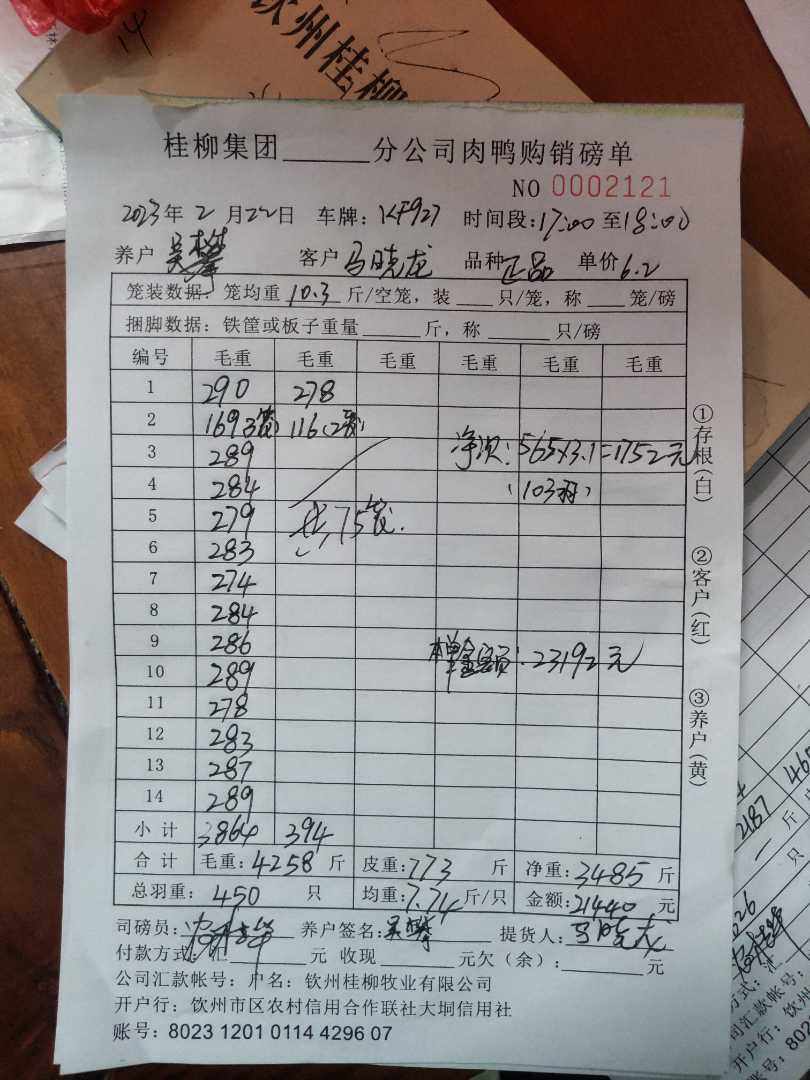 14
钦州桂柳
桂柳集团______分公司肉鸭购销磅单
NO 0002121
2023年2月22日 车牌: KF927 时间段: 17:00至18:00
养户 吴攀 客户 马晓龙 品种 正品 单价 6.2
笼装数据: 笼均重 10.3 斤/空笼, 装___只/笼, 称___笼/磅
捆脚数据: 铁筐或板子重量______斤, 称______只/磅
编号 毛重 毛重 毛重 毛重 毛重 毛重
1 290 278
2 169(3笼) 116(2笼)
3 289 净次: 565×3.1=1752元
4 284 (103羽)
5 279 75笼.
6 283
7 274
8 284
9 286 本单金额: 23192元
10 289
11 278
12 283
13 287
14 289
小计 3864 394
合计 毛重: 4258 斤 皮重: 773 斤 净重: 3485 斤
总羽重: 450 只 均重: 7.74 斤/只 金额: 21440 元
司磅员: 养户签名: 吴攀 提货人: 马晓龙
付款方式: 汇______元 收现______元欠(余): ______元
公司汇款帐号: 户名: 钦州桂柳牧业有限公司
开户行: 钦州市区农村信用合作联社大垌信用社
账号: 8023 1201 0114 4296 07
①存根(白)
②客户(红)
③养户(黄)
465
2187 斤
只
026
方式: 汇
司汇款帐号:
开户行: 钦州
账号: 802